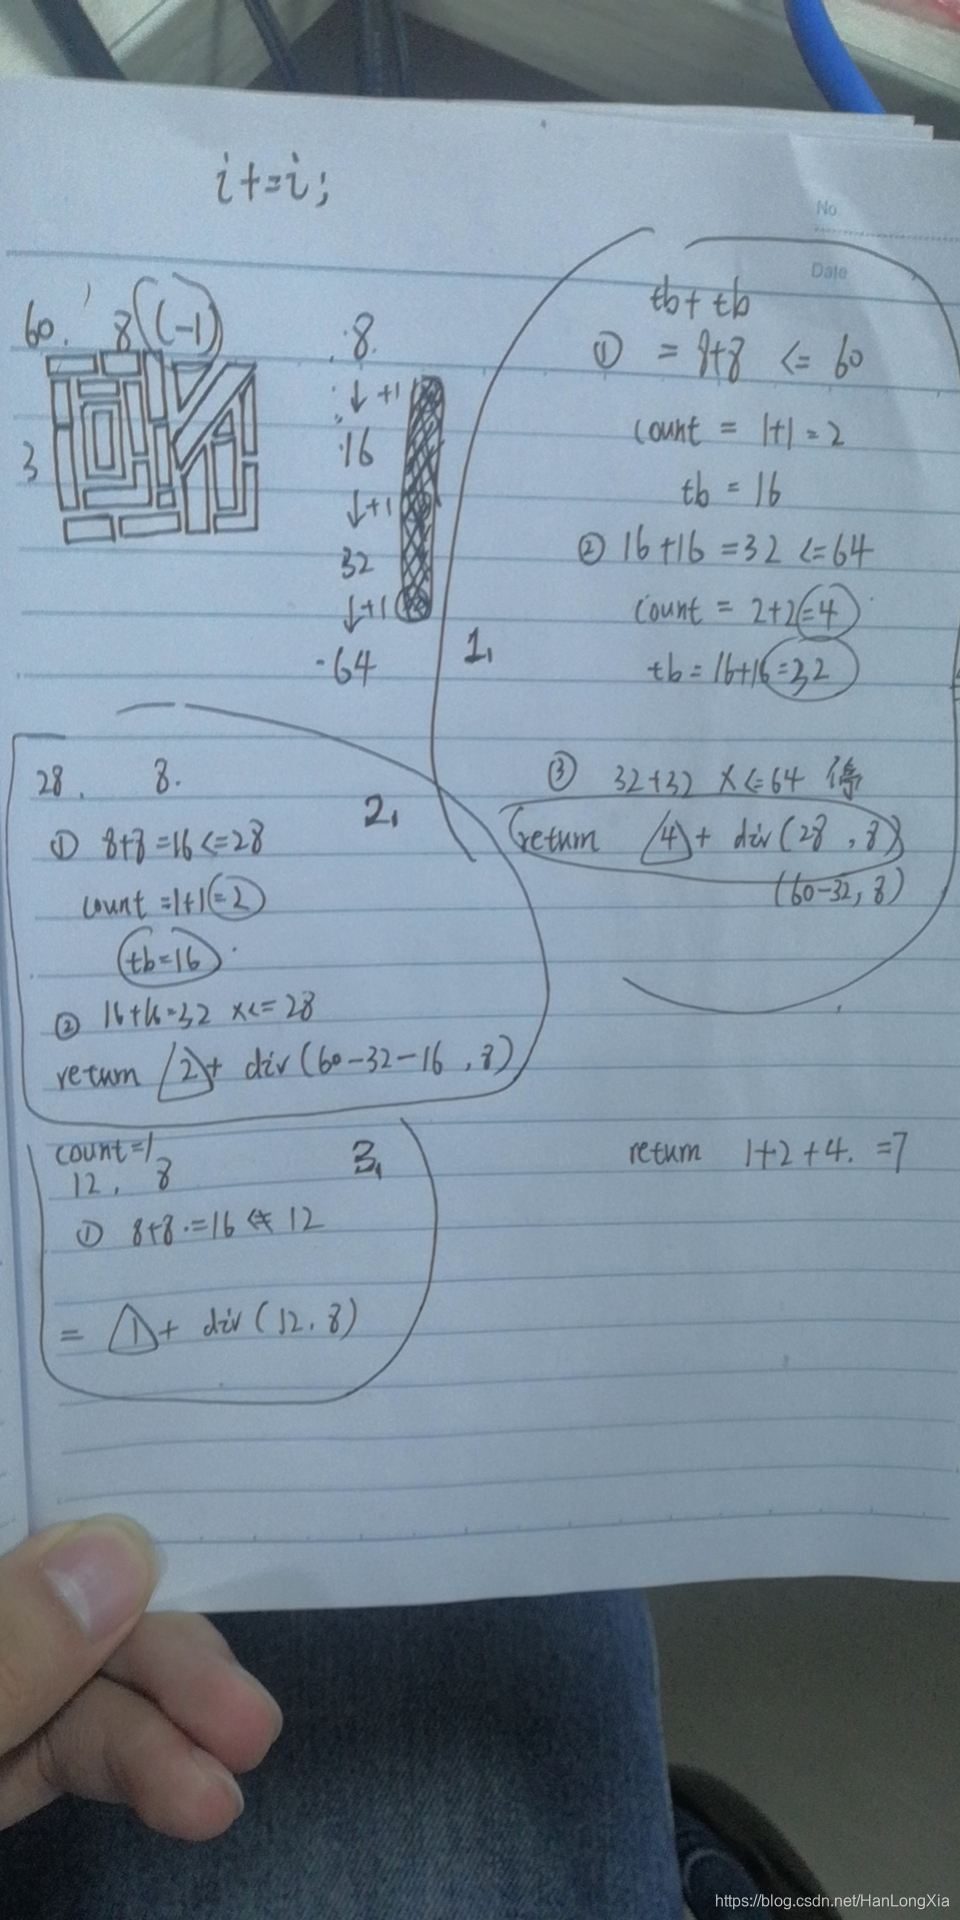 i+=i;
No
Date
60. 8 (-1)
3
8.
↓+1
16
↓+1
32
↓+1
64
1,
tb+tb
① = 8+8 <= 60
count = 1+1=2
tb = 16
② 16+16=32 <=64
count = 2+2=4
tb=16+16=32
③ 32+32 X<=64 停
return 4+ div(28,8)
(60-32,8)
28. 8.
2,
① 8+8=16<=28
count=1+1=2
tb=16
② 16+16=32 X<=28
return 2+ div(60-32-16,8)
count=1
3,
12. 8
① 8+8=16 12
= 1+ div(12.8)
return 1+2+4. =7
https://blog.csdn.net/HanLongXia